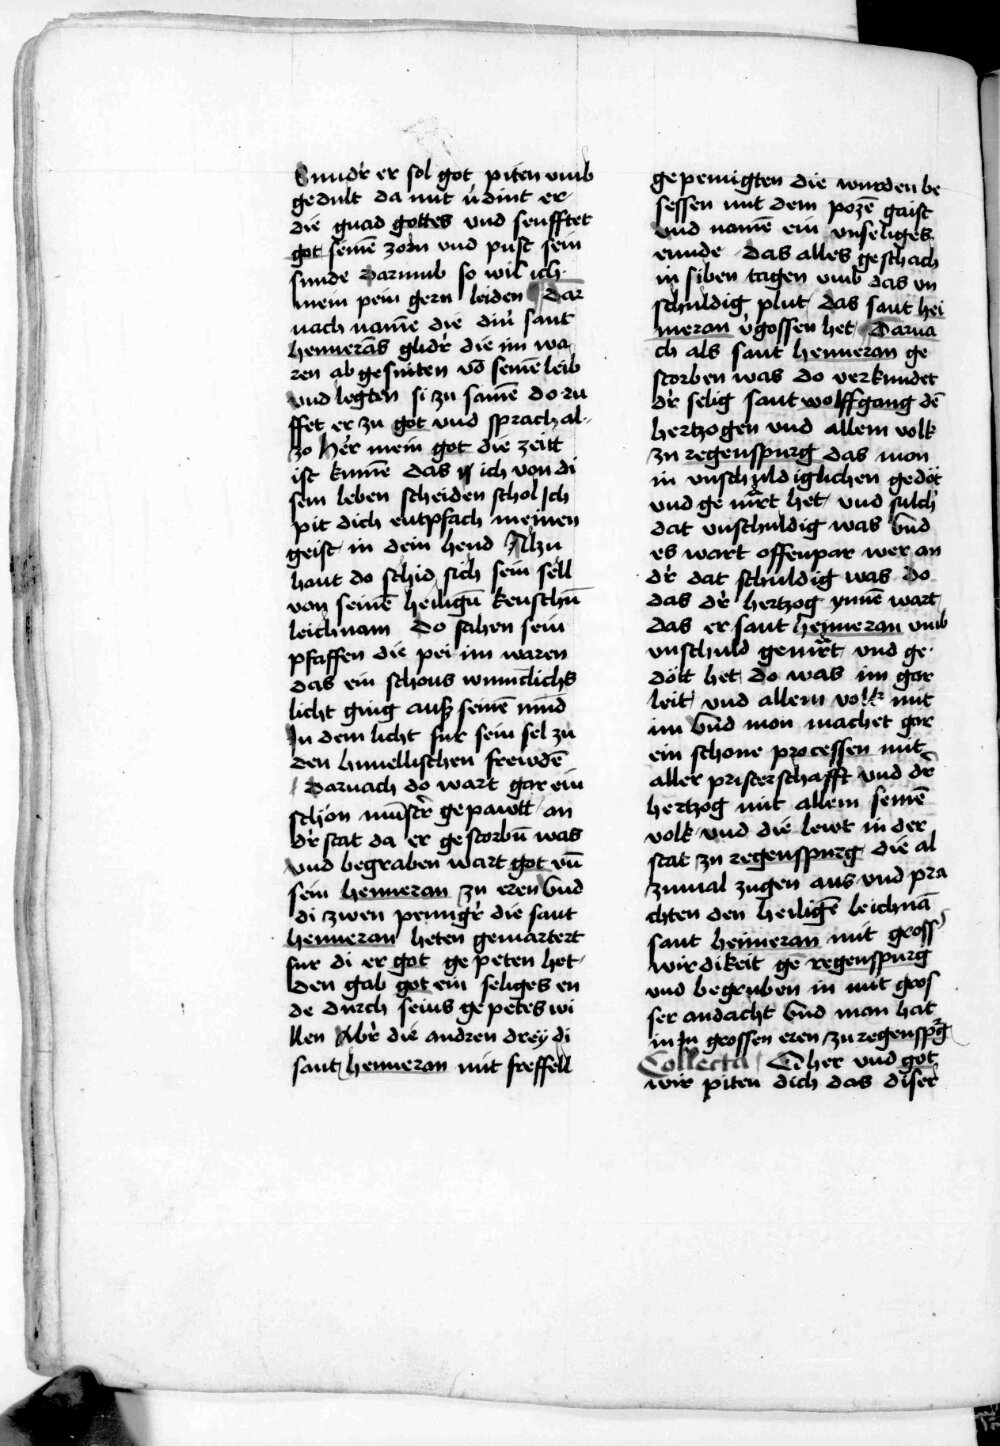 Sunder er sol got piten vmb
gedult da mit v̉dint er
die gnad gottes vnd senfftet
got seinē zorn vnd pust sein
sunde Darumb so wil ich
mein pein gern leiden Dar
nach namē die din̉ sant
hemerās glidr̉ die im wa
ren ab gesniten vō seinē leib
vnd legten si zu samē do ru
ffet er zu got vnd sprach al-
zo Her̉ mein got die zeitt
ist kumē das ich von di
sem leben scheiden schol Ich
pit dich entpfach meinen
geist in dein hend Alzu
hant do schid sich sein sell
von seinē heiligū keuschū
leichnam Do sahen sein
pfaffen die pei im waren
das ein schons wunīclichs
licht ging ausz seinē mūd
In dem licht fur sein sel zu
den himellischen frewdē
Darnach do wart gar ein
schon mūstr̉ gepawtt an
dr̉ stat da er gestorbū was
vnd begraben wart got vū
sein hemeran zu eren Vnd
di zwen peinigr̉ die sant
hemeran heten gemartert
fur di er got gepeten het
den gab got ein seliges en
de durch seins gepetes wi
llen Abr̉ die andren drey di
sant hemeran mit freffell
gepeinigten die wurden be
sessen mit dem pozē gaist
vnd namē ein vnseliges
ennde Das alles geschach
in siben tagen vmb das vn
schuldig plut das sant hei
meran v̉gossen het Darna
ch als sant hemeran ge
storben was do verkundet
dr̉ selig sant wolffgang dē
hertzogen vnd allem volk
zu regenspurg das mon
in vnschuldiglichen gedöt
vnd gemart het vnd sulch̉
dat vnschuldig was Vnd
es wart offenpar wer an
dr̉ dat schuldig was do
das dr̉ hertzog ynnē wart
das er sant hemeran vmb
vnschuld gemart vnd ge-
dött het do was im gar
leit vnd allem volk mit
im Vnd mon machet gar
ein schone processen mit
aller pristerschafft vnd dr̉
hertzog mit allem seinē
volk vnd die lewt in der
stat zu regenspurg die al
zumal zugen aus vnd pra
chten den heiligē leichnā
sant heimeran mit gross̉
wirdikeit ge regenspurg
vnd begruben in mit gros
ser andacht Vnd man hat
in In grossen eren zu regenspr̉g
Collecta O her vnd got
wir piten dich das diser